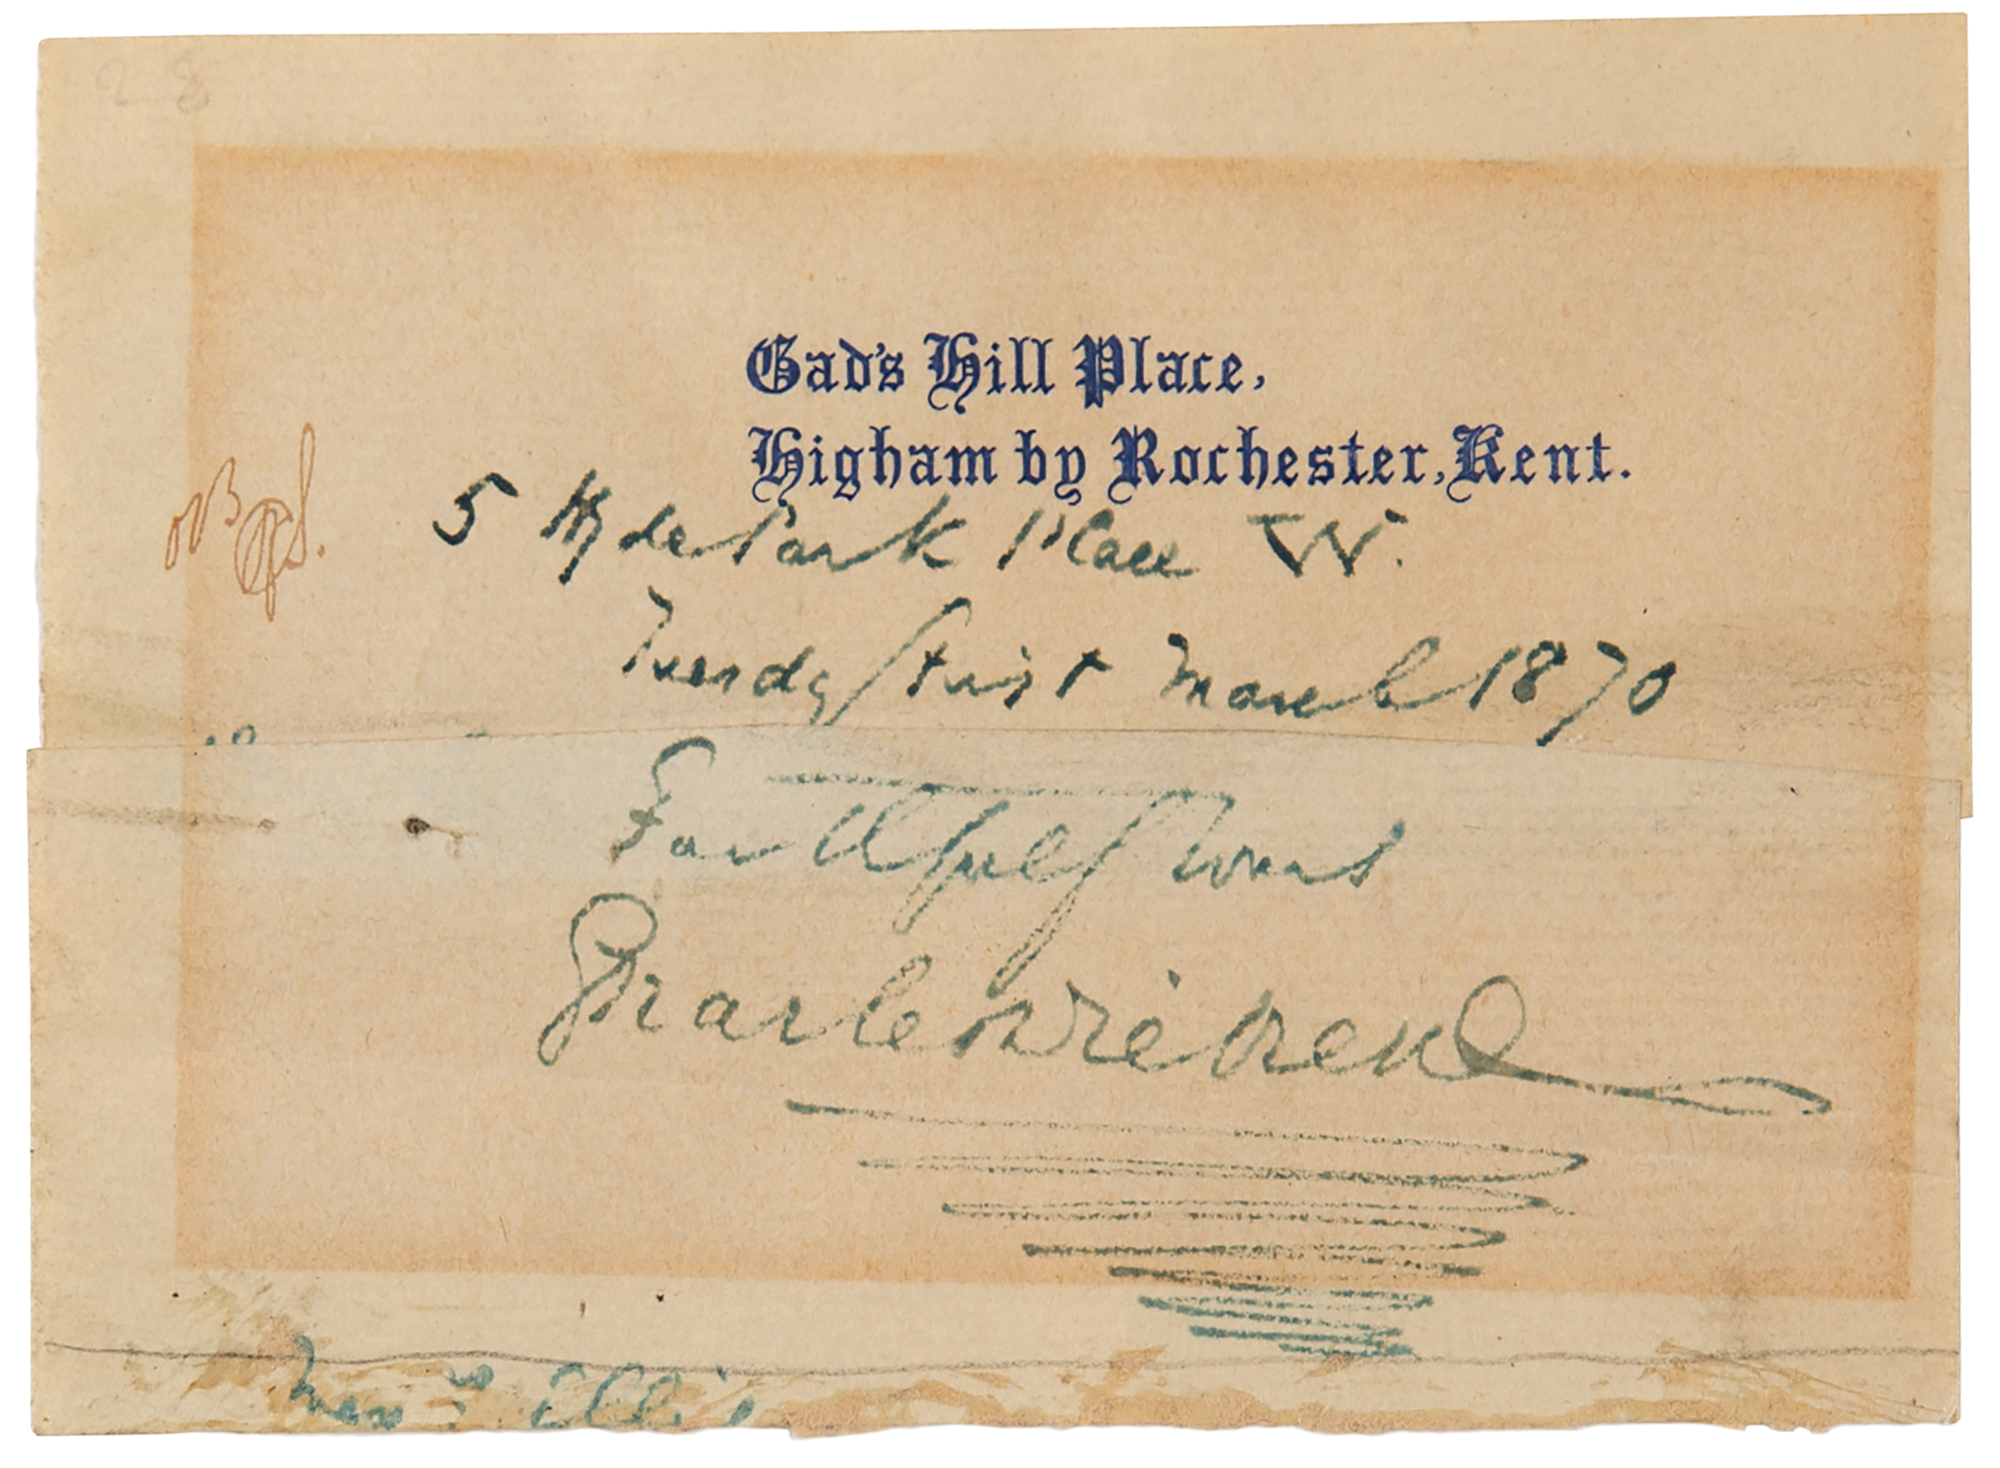 28
Gad's Hill Place,
Higham by Rochester, Kent.
5 Hyde Park Place W.
Tuesday First March 1870
Faithfully Yours
Charles Dickens
Ellis